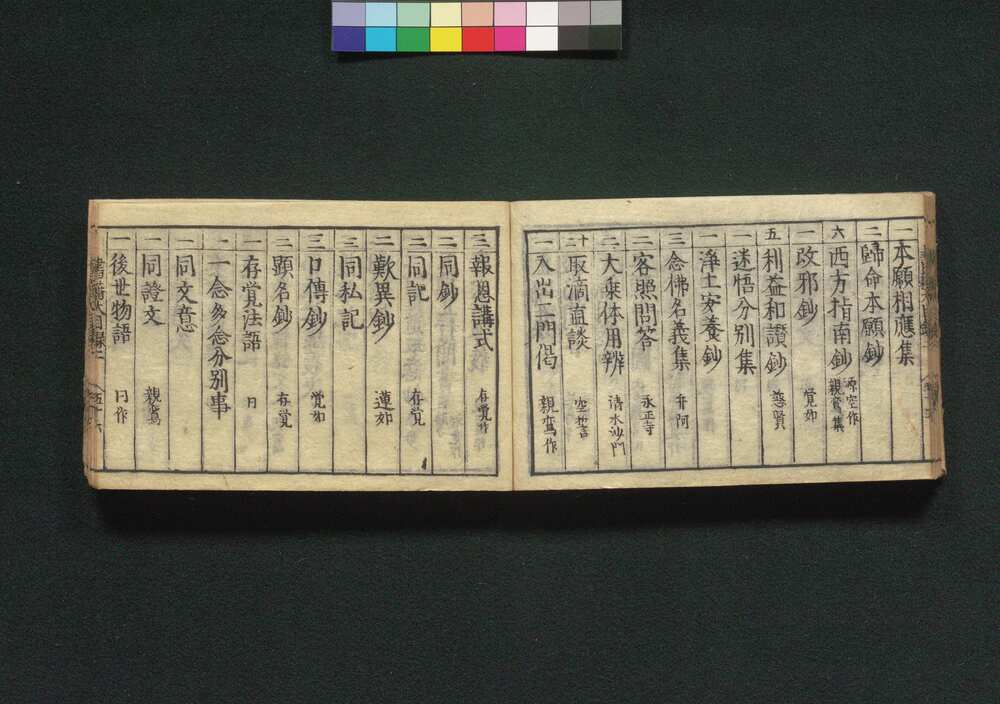 一 本願相應集
二 歸命本願鈔
六 西方指南鈔 源空作 親鸞集
一 改邪鈔 覚如
五 利益和讃鈔 慈賢
一 迷悟分別集
一 淨土安養鈔
三 念佛名義集 弁阿
二 客照問答 永正寺
二 大乗体用辨 清水沙門
十二 取滴直談
一 入出二門偈 親鸞作
三 報恩講式 存覚作
二 同鈔
二 同記 存覚
二 歎異鈔 蓮如
三 同私記
三 口傳鈔 覚如
二 顕名鈔 存覚
一 存覚法語 同
一 一念多念分別事
一 同文意
一 同證文 親鸞
一 後世物語 同作
書籍目録二 五十六